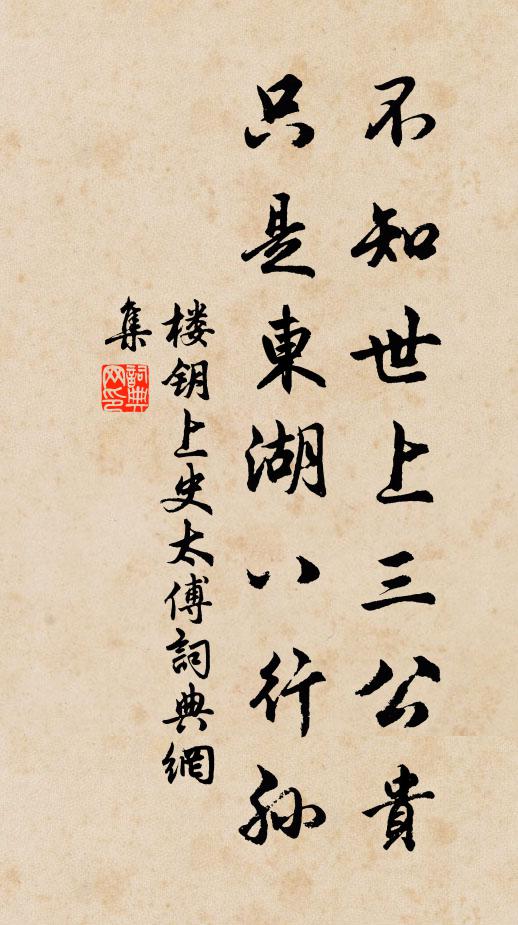 不知世上三公貴
只是東湖八行孫
楼钥上史太傅詞典網
集
詞典網印